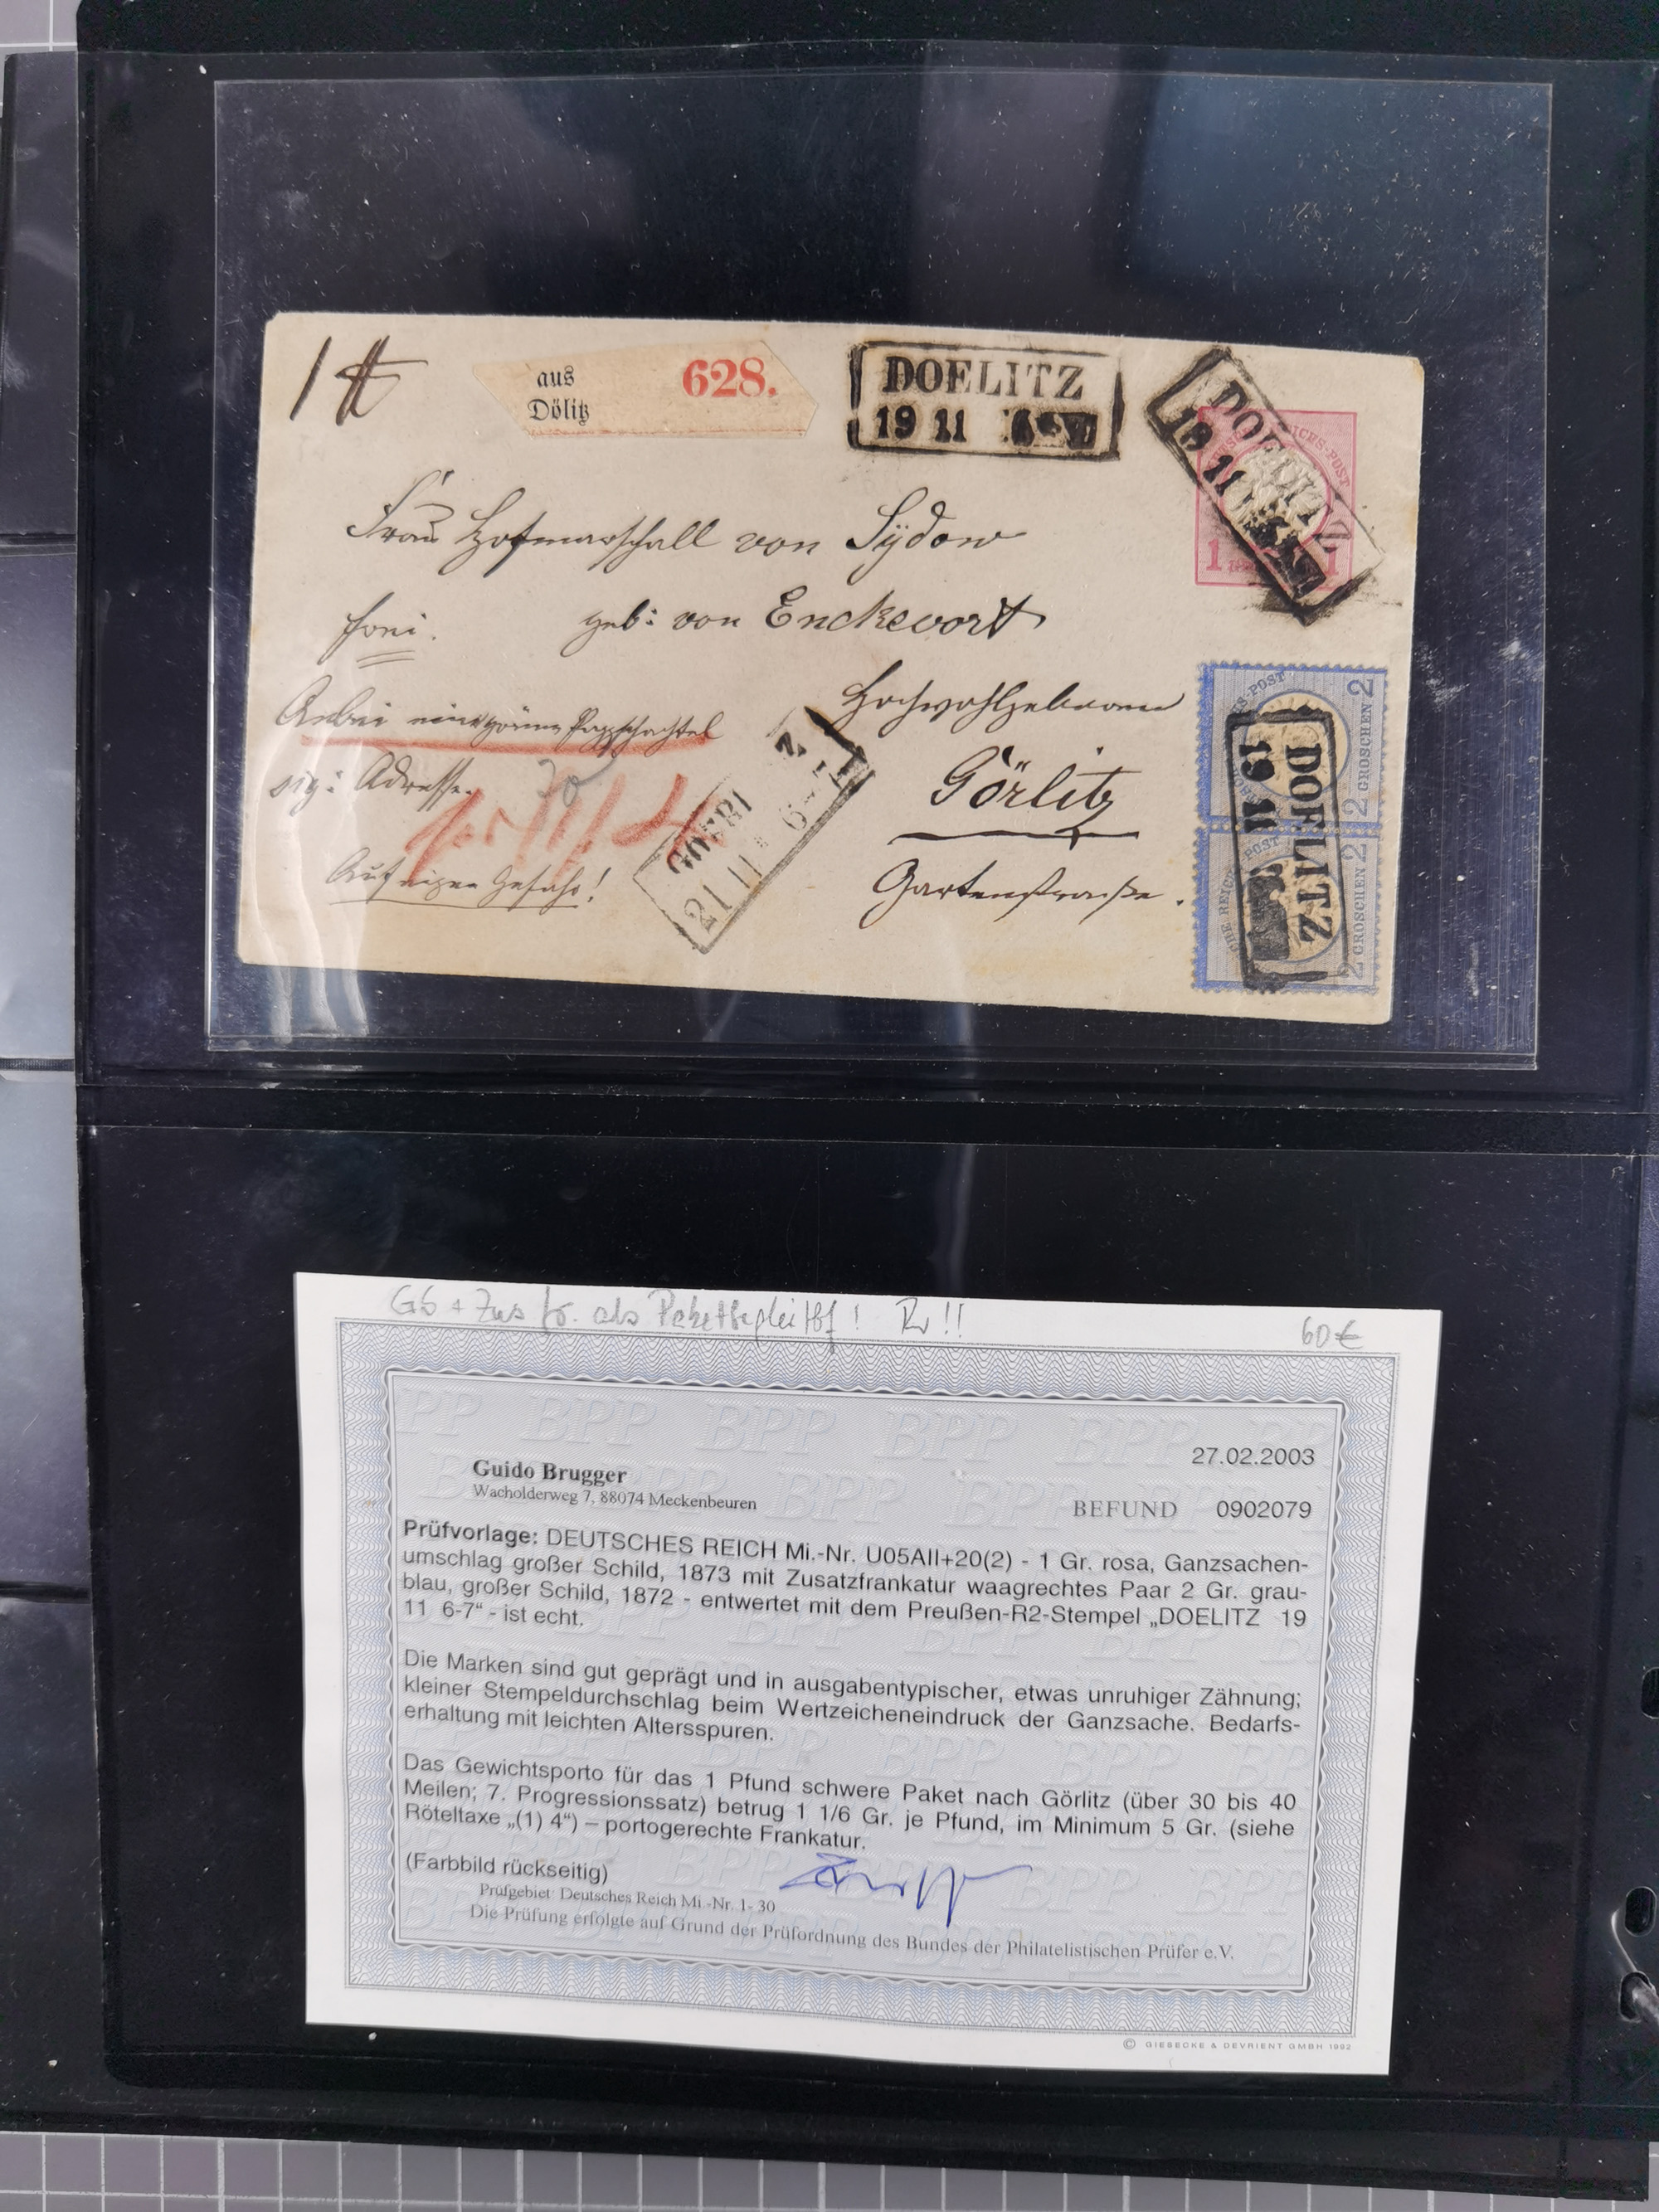 1 ℔
aus
Dölitz
628.
DOELITZ
19 11 6-7
DOELITZ
19 11
DEUTSCHE REICHS-POST
1 1
Frau Hofmarschall von Sydow
geb: von Enckevort
frei.
Hochwohlgeboren
Anbei eine grüne Pappschachtel
sig: Adresse.
70
Görlitz
Auf eigen Gefahr!
Gartenstraße.
GOERLITZ
21 11 6-7
2 GROSCHEN 2
2 GROSCHEN 2
DOELITZ
19 11
GS + Zus fr. als Paketbegleitbf! Rr!!
60€
BPP BPP BPP BPP
27.02.2003
Guido Brugger
Wacholderweg 7, 88074 Meckenbeuren
BEFUND 0902079
Prüfvorlage: DEUTSCHES REICH Mi.-Nr. U05AII+20(2) - 1 Gr. rosa, Ganzsachen-
umschlag großer Schild, 1873 mit Zusatzfrankatur waagrechtes Paar 2 Gr. grau-
blau, großer Schild, 1872 - entwertet mit dem Preußen-R2-Stempel „DOELITZ 19
11 6-7“ - ist echt.
Die Marken sind gut geprägt und in ausgabentypischer, etwas unruhiger Zähnung;
kleiner Stempeldurchschlag beim Wertzeicheneindruck der Ganzsache. Bedarfs-
erhaltung mit leichten Altersspuren.
Das Gewichtsporto für das 1 Pfund schwere Paket nach Görlitz (über 30 bis 40
Meilen; 7. Progressionssatz) betrug 1 1/6 Gr. je Pfund, im Minimum 5 Gr. (siehe
Röteltaxe „(1) 4“) – portogerechte Frankatur.
(Farbbild rückseitig)
Prüfgebiet: Deutsches Reich Mi.-Nr. 1- 30
Die Prüfung erfolgte auf Grund der Prüfordnung des Bundes der Philatelistischen Prüfer e.V.
© GIESECKE & DEVRIENT GMBH 1992